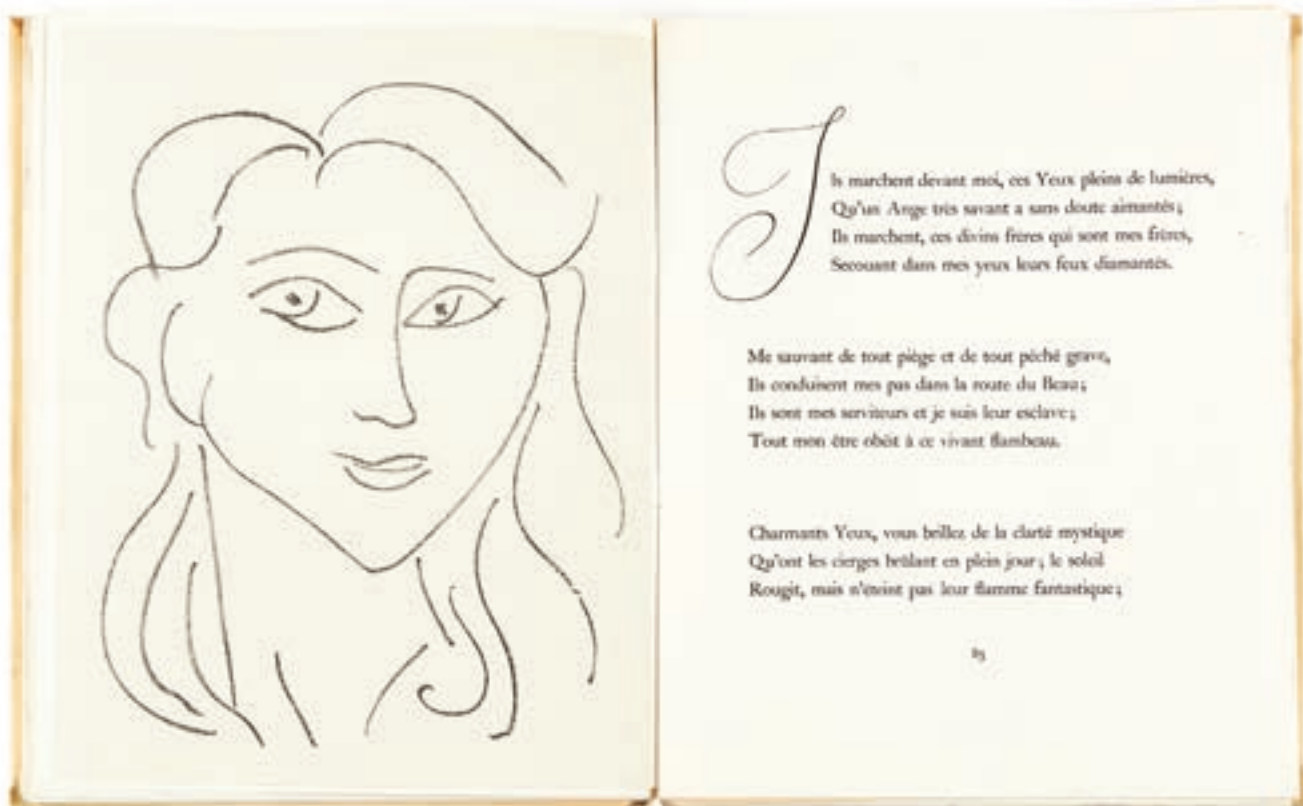 Ils marchent devant moi, ces Yeux pleins de lumières,
Qu'un Ange très savant a sans doute aimantés;
Ils marchent, ces divins frères qui sont mes frères,
Secouant dans mes yeux leurs feux diamantés.
Me sauvant de tout piège et de tout péché grave,
Ils conduisent mes pas dans la route du Beau;
Ils sont mes serviteurs et je suis leur esclave;
Tout mon être obéit à ce vivant flambeau.
Charmants Yeux, vous brillez de la clarté mystique
Qu'ont les cierges brûlant en plein jour; le soleil
Rougit, mais n'éteint pas leur flamme fantastique;